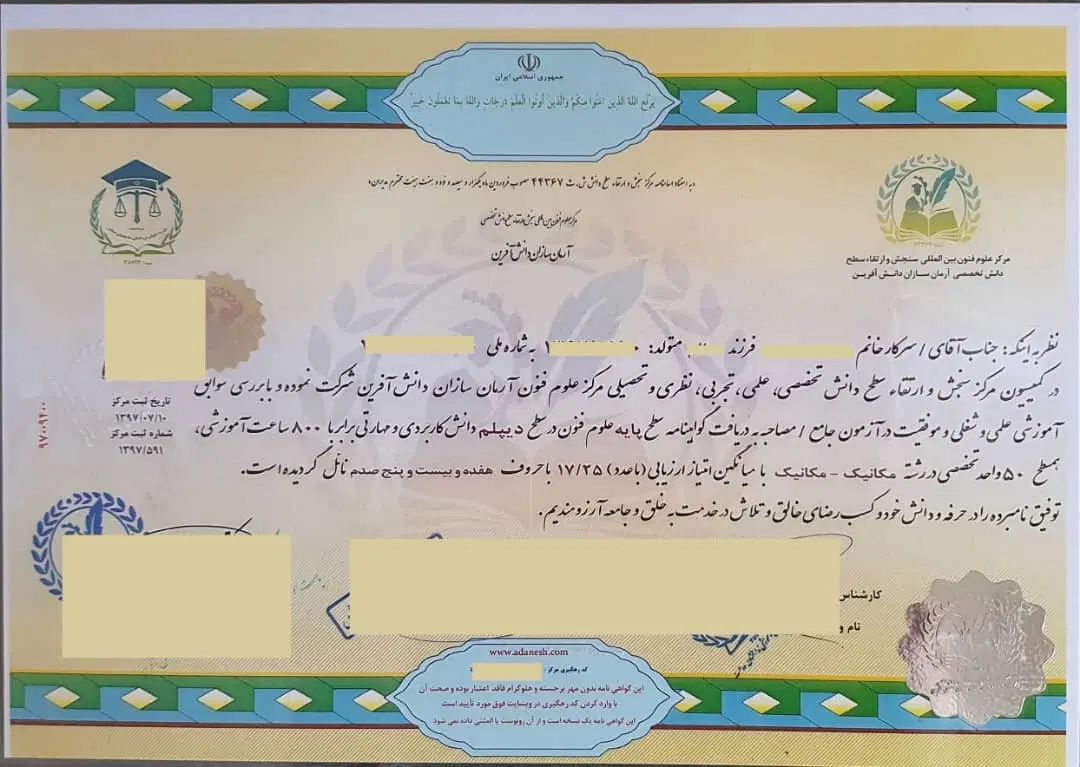 جمهوری اسلامی ایران
یَرْفَعِ اللهُ الَّذینَ آمَنُوا مِنکُمْ وَالَّذینَ اُوتُوا الْعِلْمَ دَرَجَاتٍ وَاللهُ بِمَا تَعْمَلُونَ خَبیرٌ
به استناد اساسنامه مرکز سنجش و ارتقاء سطح دانش ش.ث ۴۴۳۶۷ مصوب فروردین ماه یکهزار و سیصد و نود و هفت هیئت محترم مدیران،
مرکز علوم فنون بین المللی سنجش و ارتقاء سطح دانش تخصصی
آرمان سازان دانش آفرین
مرکز علوم فنون بین المللی سنجش و ارتقاء سطح
دانش تخصصی آرمان سازان دانش آفرین
نظر به اینکه: جناب آقای / سرکار خانم فرزند متولد: به شماره ملی
در کمیسون مرکز سنجش و ارتقاء سطح دانش تخصصی، علمی، تجربی، نظری و تحصیلی مرکز علوم فنون آرمان سازان دانش آفرین شرکت نموده و با بررسی سوابق
آموزشی علمی و شغلی و موفقیت در آزمون جامع / مصاحبه به دریافت گواهینامه سطح پایه علوم فنون در سطح دیپلم دانش کاربردی و مهارتی برابر با ۸۰۰ ساعت آموزشی،
بمسطح ۵۰ واحد تخصصی در رشته مکانیک - مکانیک با میانگین امتیاز ارزیابی (باعدد) ۱۷/۲۵ با حروف هفده و بیست و پنج صدم نائل گردیده است.
توفیق نامبرده را در حرفه و دانش خود و کسب رضای خالق و تلاش در خدمت به خلق و جامعه آرزومندیم.
تاریخ ثبت مرکز
۱۳۹۷/۰۷/۱۰
شماره ثبت مرکز
۱۳۹۷/۵۹۱
۹۷۰۰۹۴۰۰
کارشناس
نام و
www.adanesh.com
کد رهگیری مرکز :
این گواهی نامه بدون مهر برجسته و هلوگرام فاقد اعتبار بوده و صحت آن
با وارد کردن کد رهگیری در وبسایت فوق مورد تأیید است
این گواهی نامه یک نسخه است و از آن رونوست یا المثنی داده نمی شود